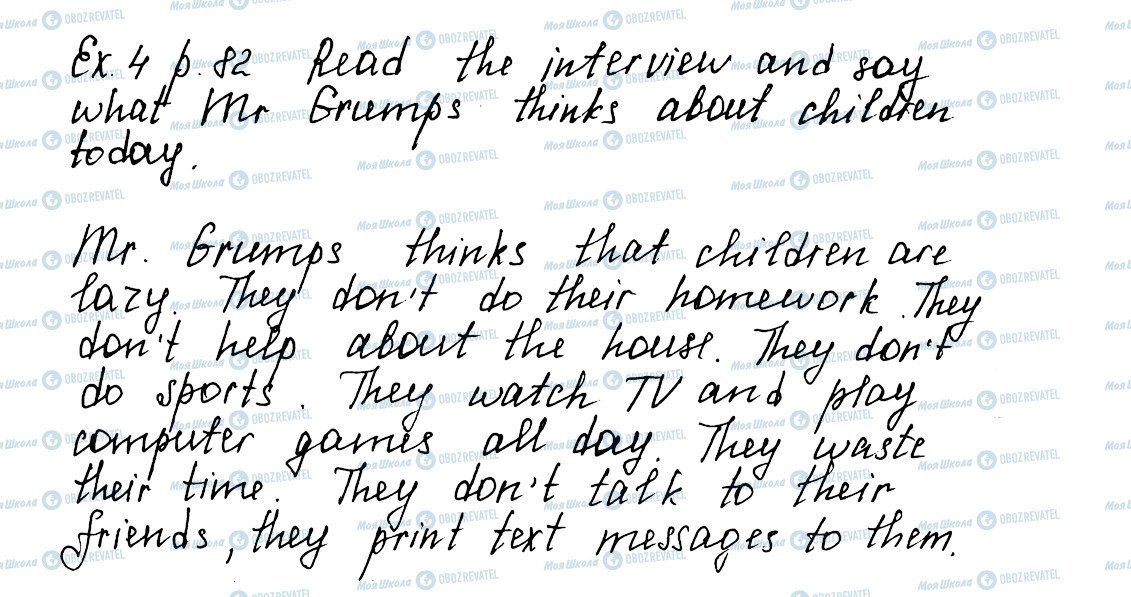 Ex. 4 p. 82 Read the interview and say
what Mr Grumps thinks about children
today.
Mr. Grumps thinks that children are
lazy. They don't do their homework. They
don't help about the house. They don't
do sports. They watch TV and play
computer games all day. They waste
their time. They don't talk to their
friends, they print text messages to them.
МояШкола OBOZREVATEL